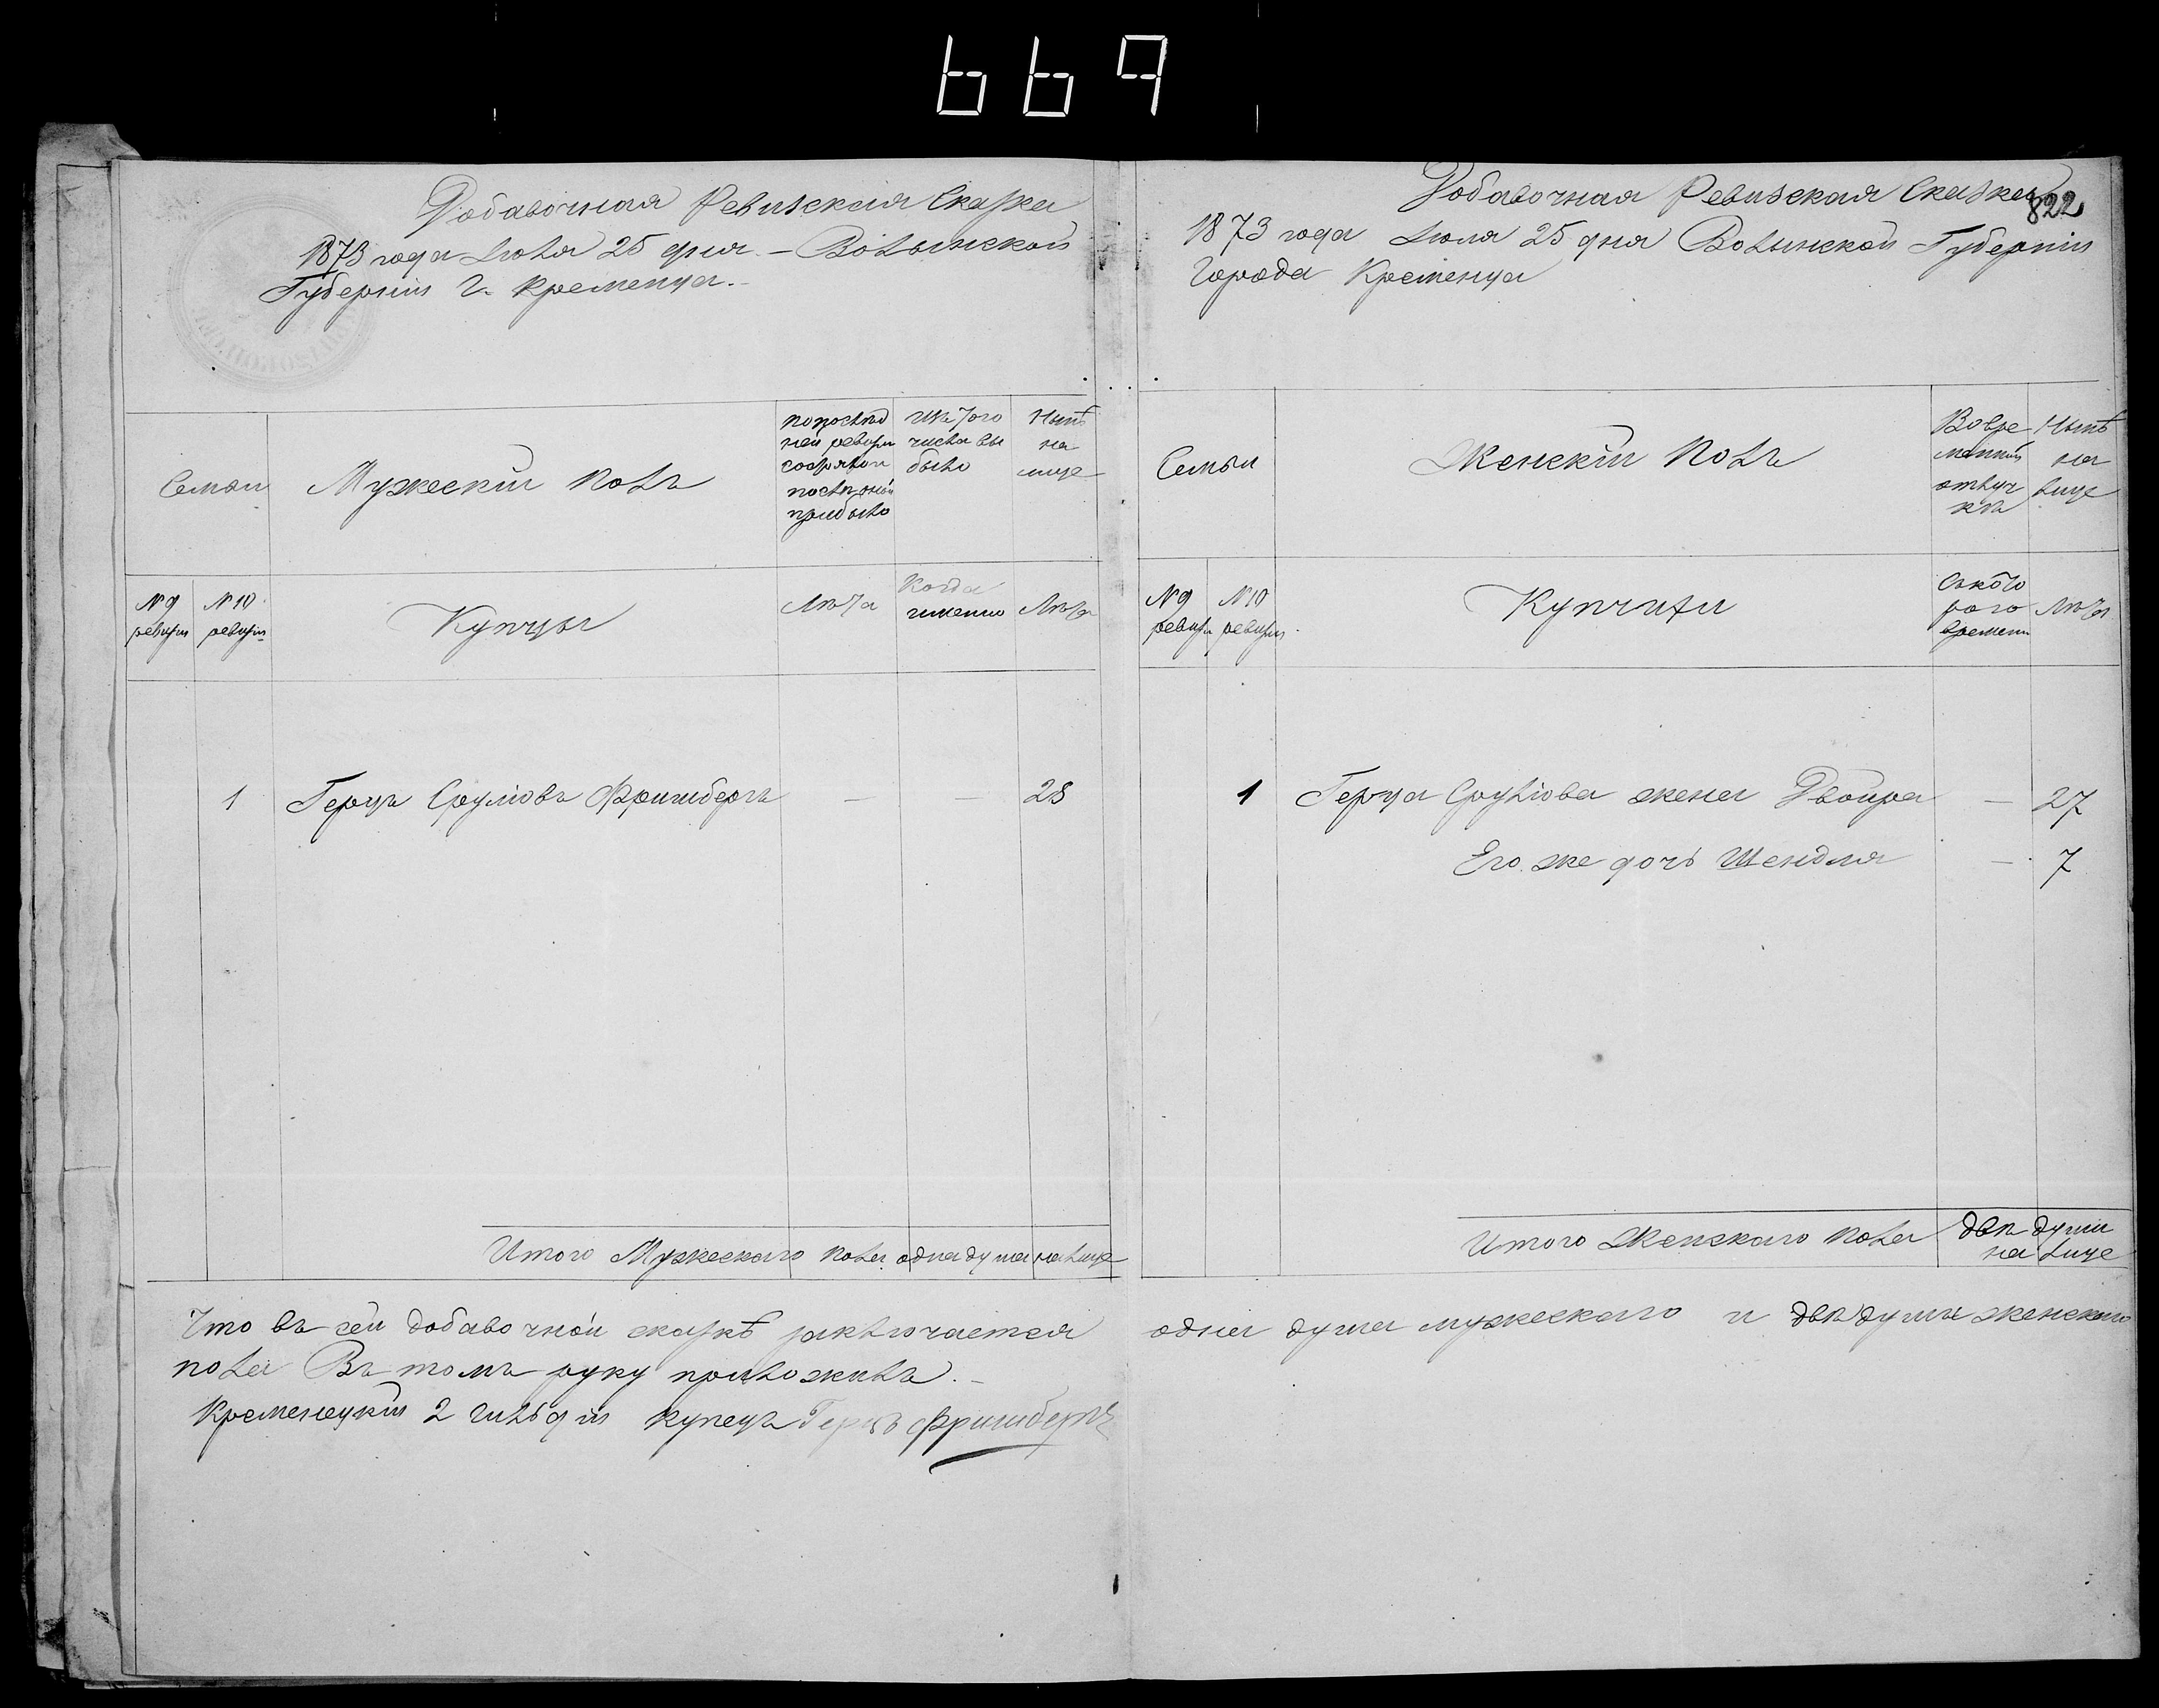 669
Добавочная Ревизская Сказка
1873 года Июля 25 дня. – Волынской
Губерніи г. Кременца. –
Семьи
Мужескій полъ
по послѣд
ней ревизіи
состояло и
послѣ оной
прибыло
изъ того
числа вы
было
Нынѣ
на
лице
№ 9
ревизіи
№ 10
ревизіи
Купцы
Лѣта
Когда
именно
Лѣта
1 Герцъ Сруліовъ Фришбергъ — — 28
Итого Мужескаго пола одна душа на лице
822
Добавочная Ревизская Сказка
1873 года Июля 25 дня Волынской Губерніи
Города Кременца
Семьи
Женскій полъ
Вовре
менной
отлуч
кѣ
Нынѣ
на
лице
№ 9
ревизіи
№ 10
ревизіи
Купчихи
Съ кото
раго
времени
Лѣта
1 Герца Сруліова жена Двойра — 27
Его же дочь Шендля — 7
Итого Женскаго пола двѣ души
на лице
Что въ сей добавочной сказкѣ заключается одна душа мужескаго и двѣ души женскаго
пола Въ томъ руку приложилъ. –
Кременецкій 2 гильдіи купецъ Герцъ Фришбергъ